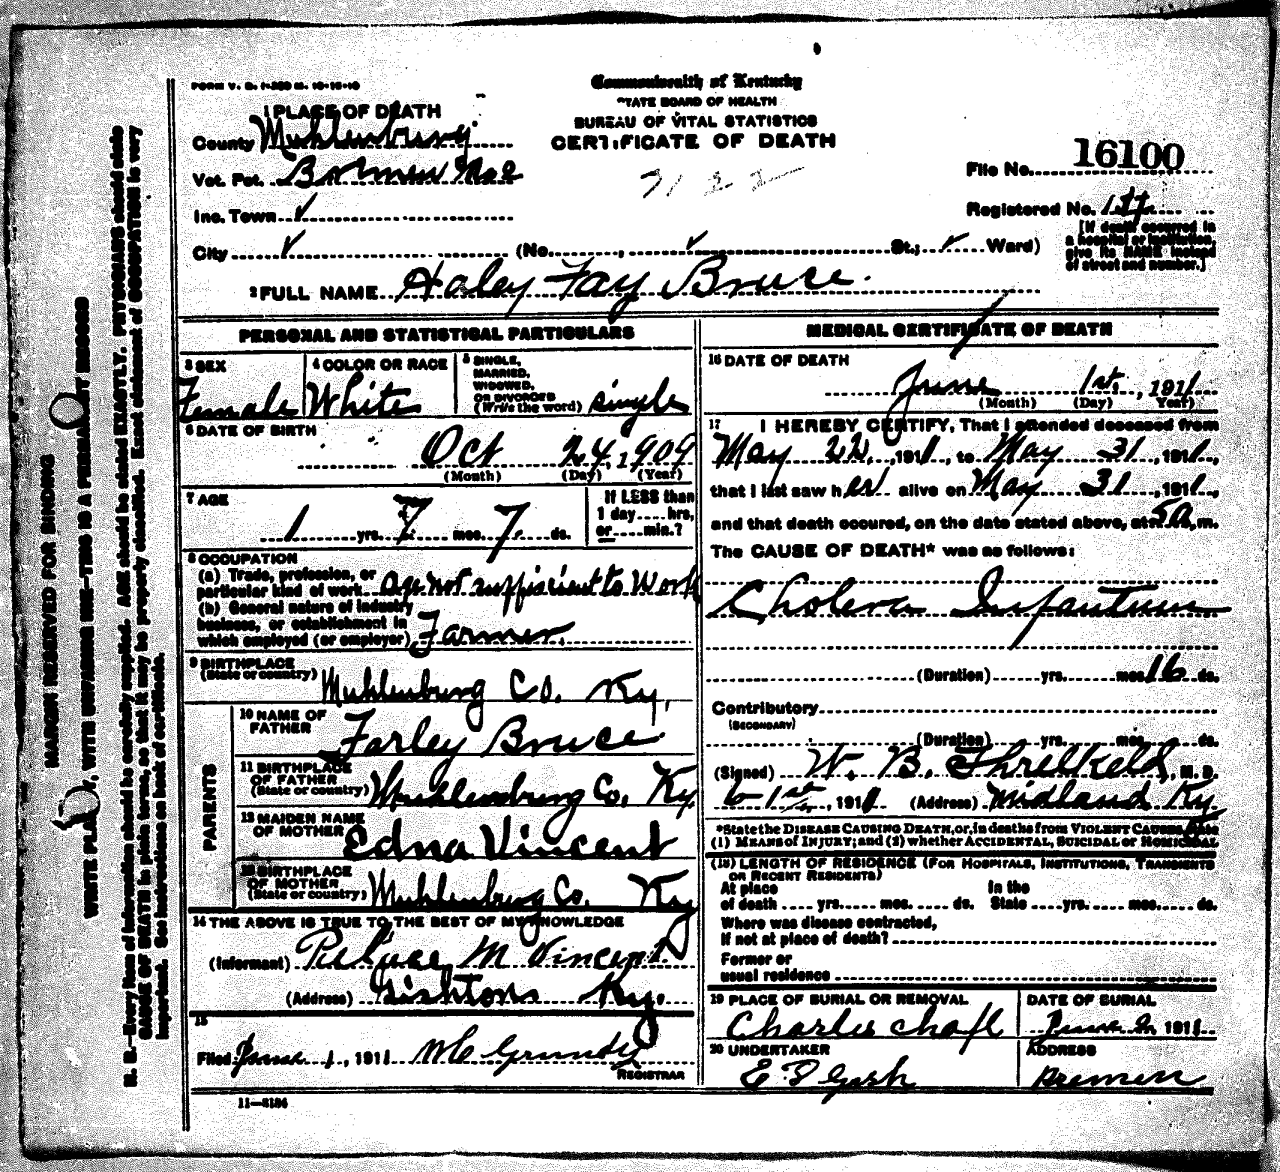 FORM V. S. 1-350 M. 10-15-10
Commonwealth of Kentucky
STATE BOARD OF HEALTH
BUREAU OF VITAL STATISTICS
CERTIFICATE OF DEATH
1 PLACE OF DEATH
County Muhlenburg
Vot. Pct.
Inc. Town
City (No. , St.; Ward)
File No. 16100
Registered No.
[If death occurred in
a hospital or institution,
give its NAME instead
of street and number.]
2 FULL NAME Haley Fay Bruce.
PERSONAL AND STATISTICAL PARTICULARS
3 SEX
Female
4 COLOR OR RACE
White
5 SINGLE,
MARRIED,
WIDOWED,
OR DIVORCED
(Write the word) single
6 DATE OF BIRTH
Oct 24, 1909
(Month) (Day) (Year)
7 AGE
1 yrs. 7 mos. 7 ds.
If LESS than
1 day....hrs.
or....min.?
8 OCCUPATION
(a) Trade, profession, or
particular kind of work age not suffisient to Work
(b) General nature of industry
business, or establishment in
which employed (or employer) Farmer
9 BIRTHPLACE
(State or country) Muhlenburg Co. Ky,
PARENTS
10 NAME OF
FATHER Farley Bruce
11 BIRTHPLACE
OF FATHER
(State or country) Muhlenburg Co. Ky
12 MAIDEN NAME
OF MOTHER Edna Vincent
13 BIRTHPLACE
OF MOTHER
(State or country) Muhlenburg Co. Ky
14 THE ABOVE IS TRUE TO THE BEST OF MY KNOWLEDGE
(Informant) M Vincent
(Address) Gishtons Ky.
15
Filed June 1, 1911
REGISTRAR
11—3184
MEDICAL CERTIFICATE OF DEATH
16 DATE OF DEATH
June 1st, 1911
(Month) (Day) (Year)
17 I HEREBY CERTIFY, That I attended deceased from
May 22, 1911, to May 31, 1911,
that I last saw her alive on May 31, 1911,
and that death occured, on the date stated above, at 5 a. m.
The CAUSE OF DEATH* was as follows:
Cholera Infantum
(Duration) yrs. mos. 16 ds.
Contributory
(SECONDARY)
(Duration) yrs. mos. ds.
(Signed) W. B. Threlkeld, M. D.
6 1st, 1911 (Address) Midland Ky
*State the DISEASE CAUSING DEATH, or, in deaths from VIOLENT CAUSES, state
(1) MEANS of INJURY; and (2) whether ACCIDENTAL, SUICIDAL or HOMICIDAL
(18) LENGTH OF RESIDENCE (FOR HOSPITALS, INSTITUTIONS, TRANSIENTS
OR RECENT RESIDENTS)
At place In the
of death .... yrs. .... mos. .... ds. State ....yrs. .... mos. .... ds.
Where was disease contracted,
If not at place of death?
Former or
usual residence
19 PLACE OF BURIAL OR REMOVAL
Charlie Chapl
DATE OF BURIAL
June 2, 1911.
20 UNDERTAKER
E P Gish
ADDRESS
Bremen
MARGIN RESERVED FOR BINDING
WRITE PLAINLY, WITH UNFADING INK—THIS IS A PERMANENT RECORD
N. B.—Every item of information should be carefully supplied. AGE should be stated EXACTLY. PHYSICIANS should state
CAUSE OF DEATH in plain terms, so that it may be properly classified. Exact statement of OCCUPATION is very
important. See instructions on back of certificate.